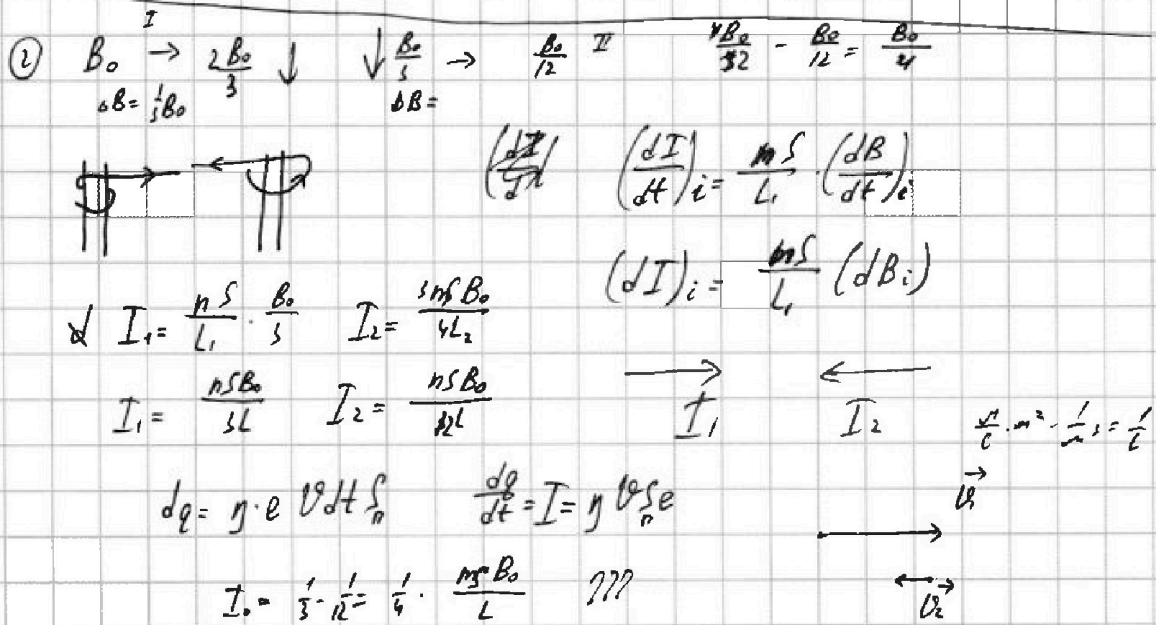 ② B₀ →ᴵ 2B₀/3 ↓ ↓ B₀/3 → B₀/12 II 4B₀/12 - B₀/12 = B₀/4
ΔB = 1/3 B₀ ΔB =
(dI/dt)ᵢ = nS/L₁ · (dB/dt)ᵢ
(dI)ᵢ = nS/L₁ (dBᵢ)
I₁ = nS/L₁ · B₀/3 I₂ = 3nSB₀/4L₂
I₁ = nSB₀/3L I₂ = nSB₀/12L
I₁ I₂
dq = η·e υdt Sₙ dq/dt = I = η υSₙe
υ₁
I₀ = 1/3 - 1/12 = 1/4 · nSB₀/L ???
υ₂